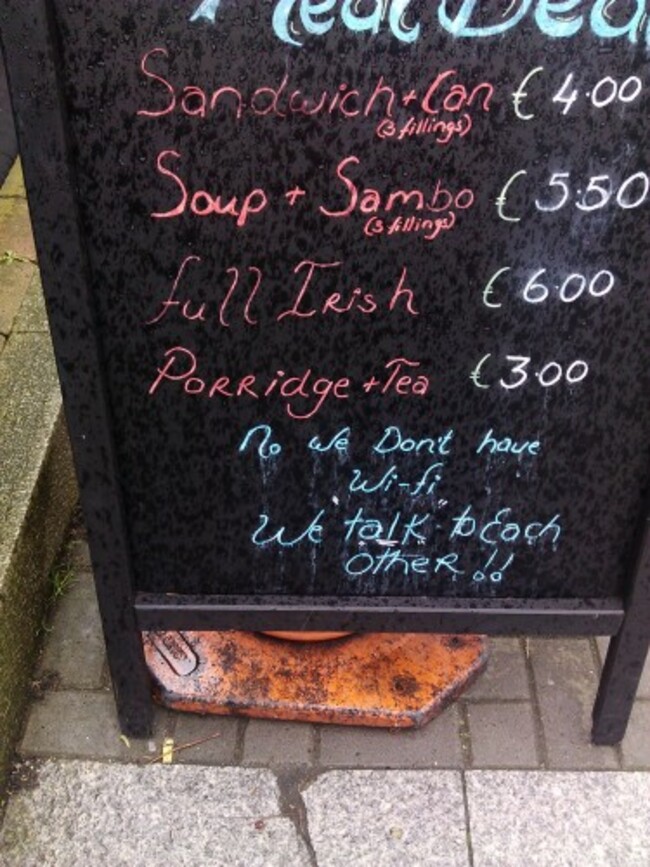 Meal Deal
Sandwich + Can €4.00
(3 fillings)
Soup + Sambo €5.50
(3 fillings)
full Irish €6.00
Porridge + Tea €3.00
No we Don't have
Wi-fi
We "talk" to Each
other !!